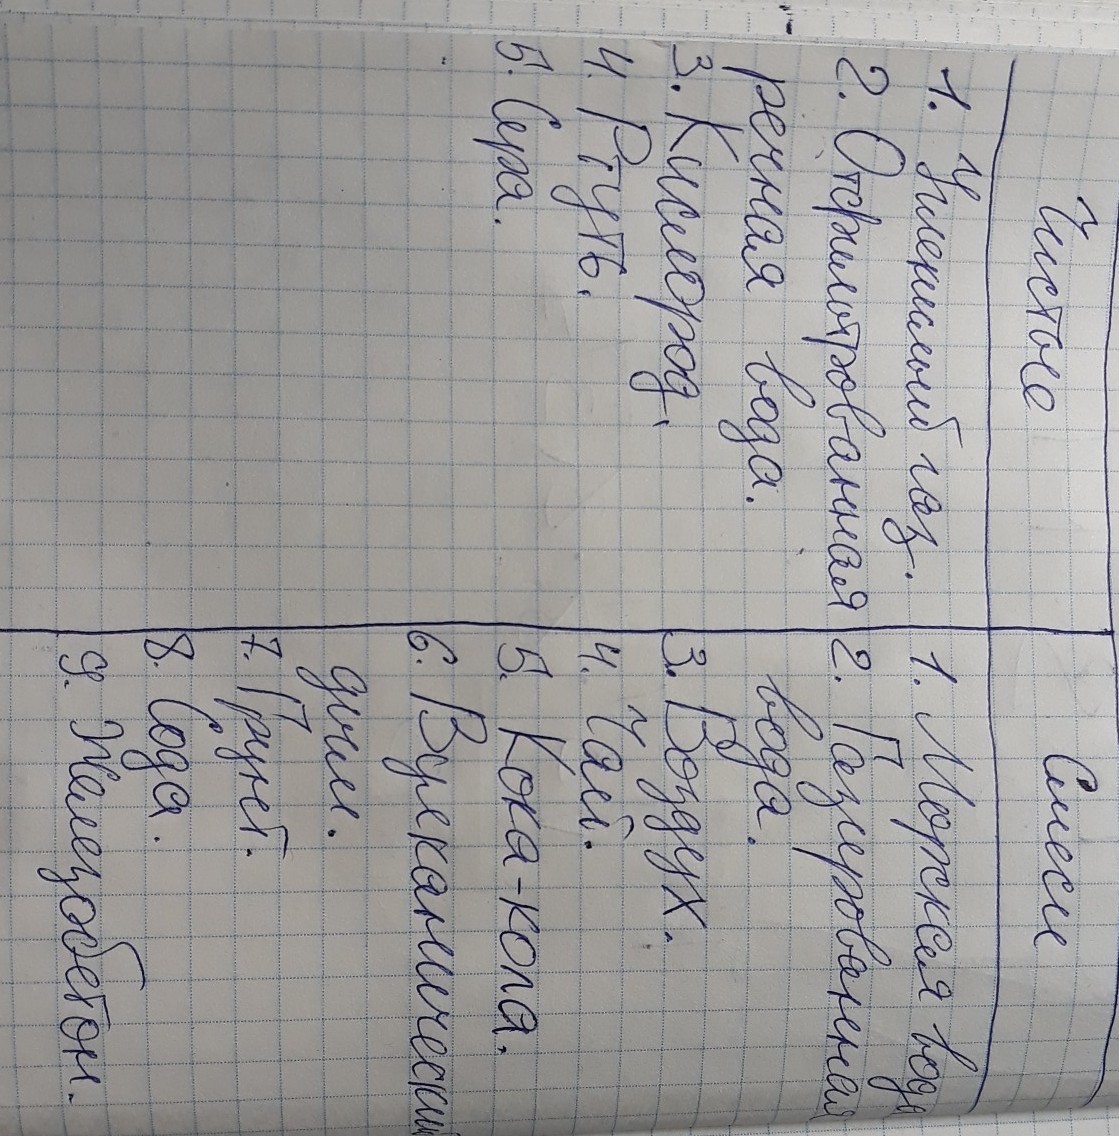 Чистые
1. Углекислый газ.
2. Отфильтрованная
речная вода.
3. Кислород.
4. Ртуть.
5. Сера.
Смеси
1. Морская вода
2. Газированная
вода.
3. Воздух.
4. Чай.
5. Кока-кола.
6. Вулканический
дым.
7. Грунт.
8. Сода.
9. Железобетон.